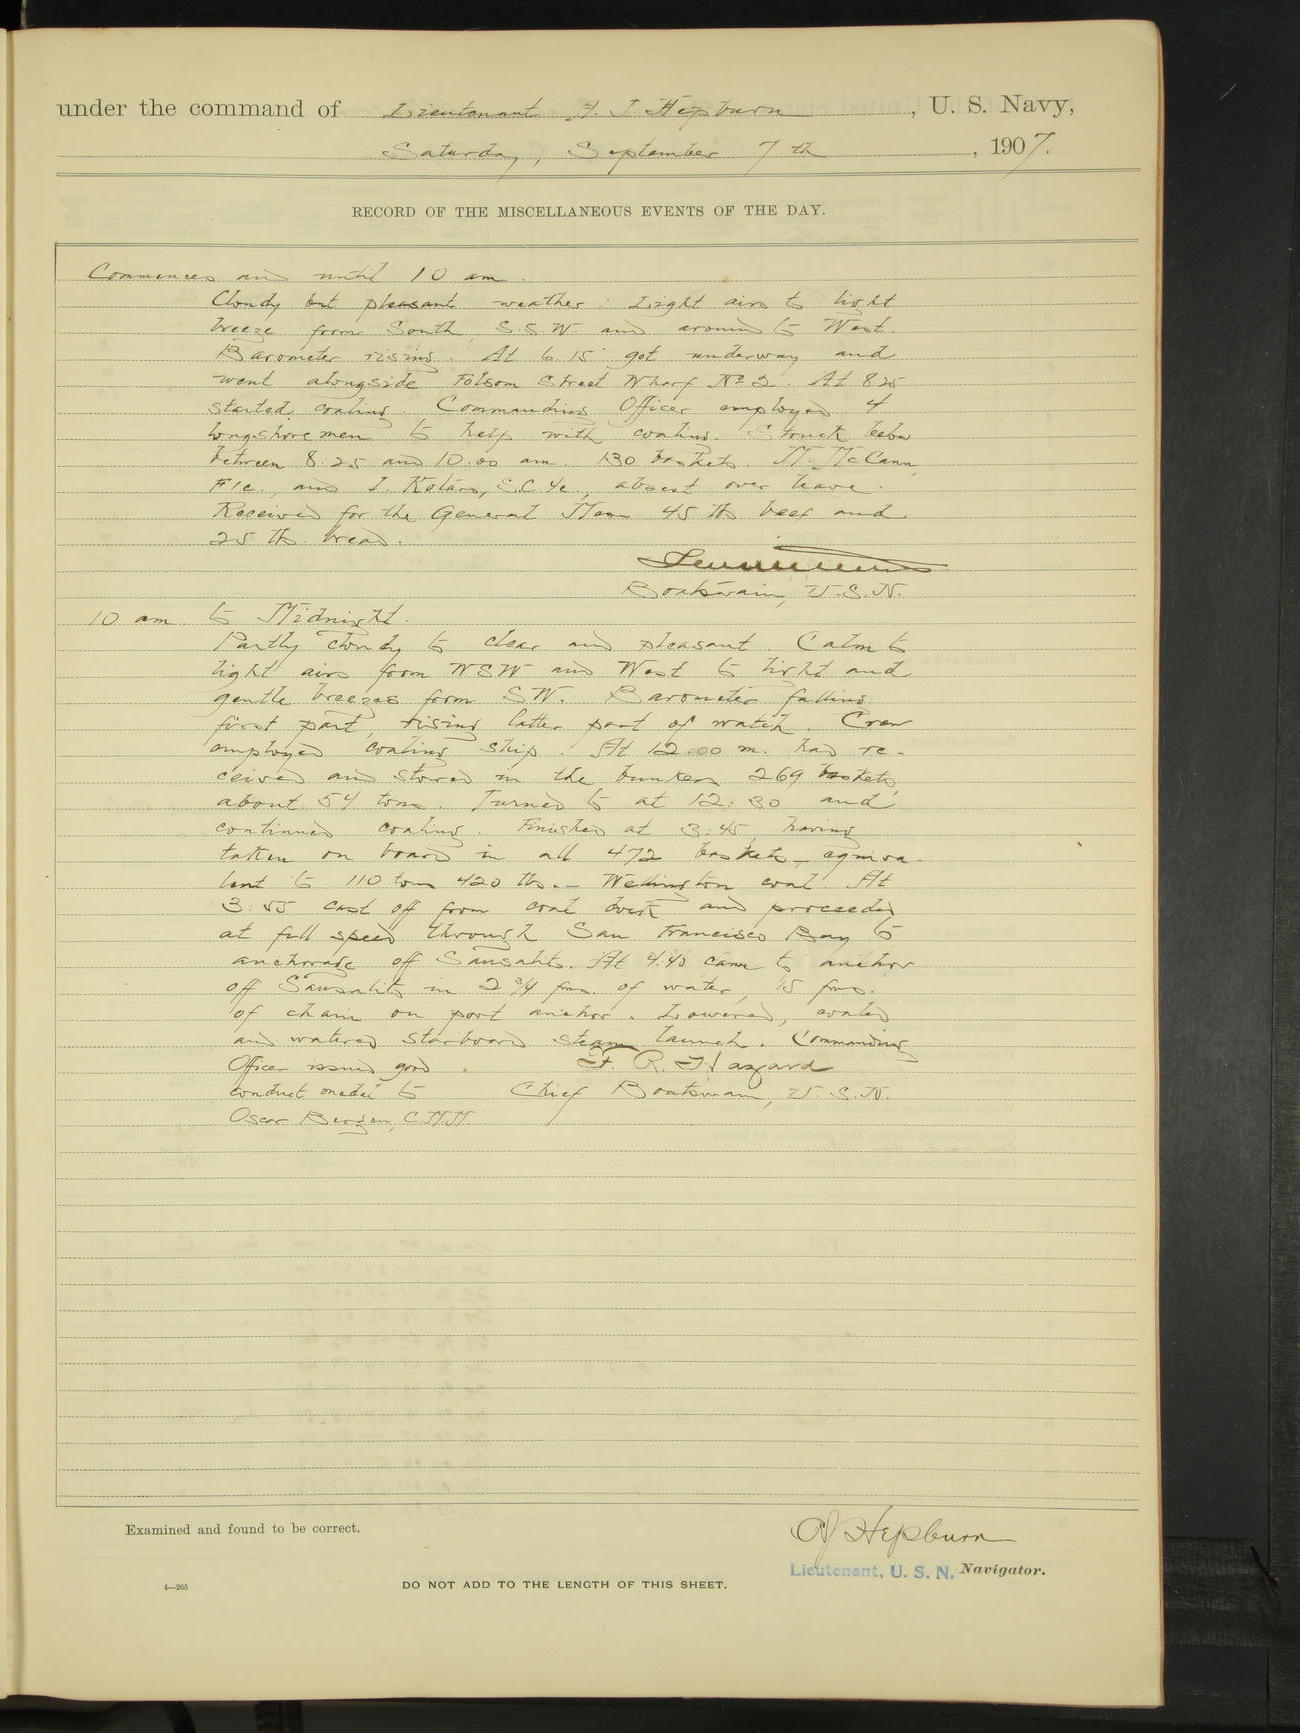 under the command of Lieutenant A. J Hepburn, U. S. Navy,
Saturday, September 7th, 1907.
RECORD OF THE MISCELLANEOUS EVENTS OF THE DAY.
Commences and until 10 am.
Cloudy but pleasant weather. Light airs to light
breeze from South, S.S.W. and around to West.
Barometer rising. At 6:15 got underway and
went alongside Folsom Street Wharf No 2. At 8:25
started coaling. Commanding Officer employed 4
longshoremen to help with coaling. Struck below
between 8:25 and 10:00 am. 130 baskets. M. McCann,
F1c., and I. Kotaro, S.C.4c., absent over leave.
Received for the General Mess 45 lbs beef and
25 lbs. bread.
Boatswain, U.S.N.
10 am. to Midnight.
Partly cloudy to clear and pleasant. Calm to
light airs from WSW and West to light and
gentle breezes from SW. Barometer falling
first part, rising latter part of watch. Crew
employed coaling ship. At 12:00 m. had re-
ceived and stowed in the bunkers 269 baskets,
about 54 tons. Turned to at 12:30 and
continued coaling. Finished at 3:45, having
taken on board in all 472 baskets - equiva-
lent to 110 tons 420 lbs. - Wellington coal. At
3:55 cast off from coal dock and proceeded
at full speed through San Francisco Bay to
anchorage off Sausalito. At 4:40 came to anchor
off Sausalito in 2 3/4 fms. of water, 15 fms.
of chain on port anchor. Lowered, coaled
and watered starboard steam launch. Commanding
Officer issued good F. R. Hazard
conduct medal to Chief Boatswain, U.S.N.
Oscar Bergen, C.M.M.
Examined and found to be correct.
AJHepburn
Lieutenant, U. S. N. Navigator.
4—265
DO NOT ADD TO THE LENGTH OF THIS SHEET.